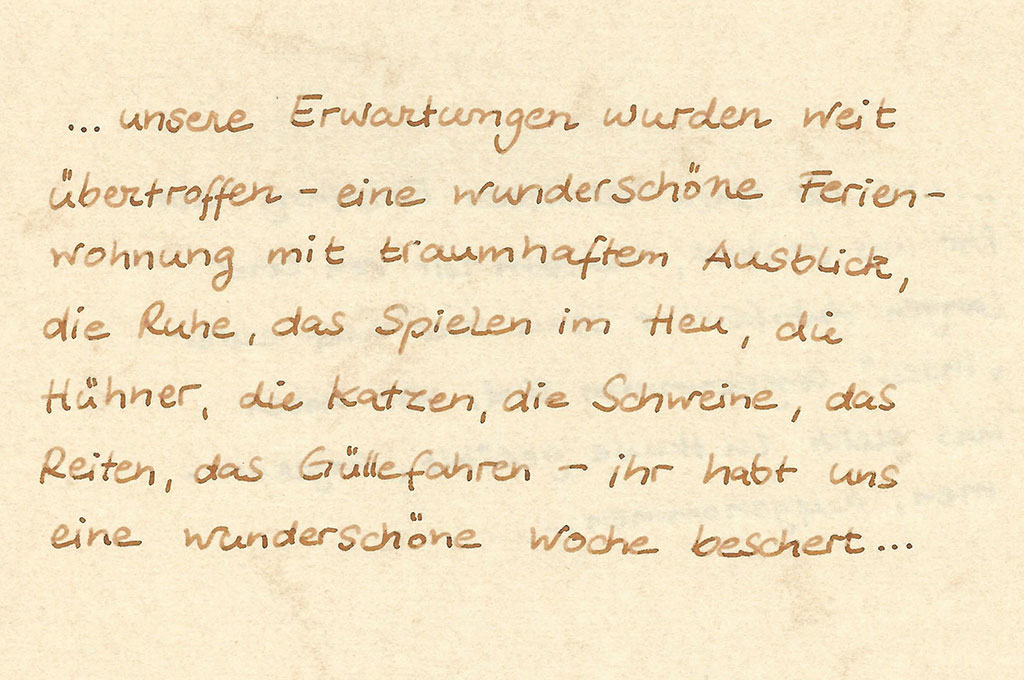 ... unsere Erwartungen wurden weit
übertroffen – eine wunderschöne Ferien-
wohnung mit traumhaftem Ausblick,
die Ruhe, das Spielen im Heu, die
Hühner, die Katzen, die Schweine, das
Reiten, das Güllefahren – ihr habt uns
eine wunderschöne Woche beschert...